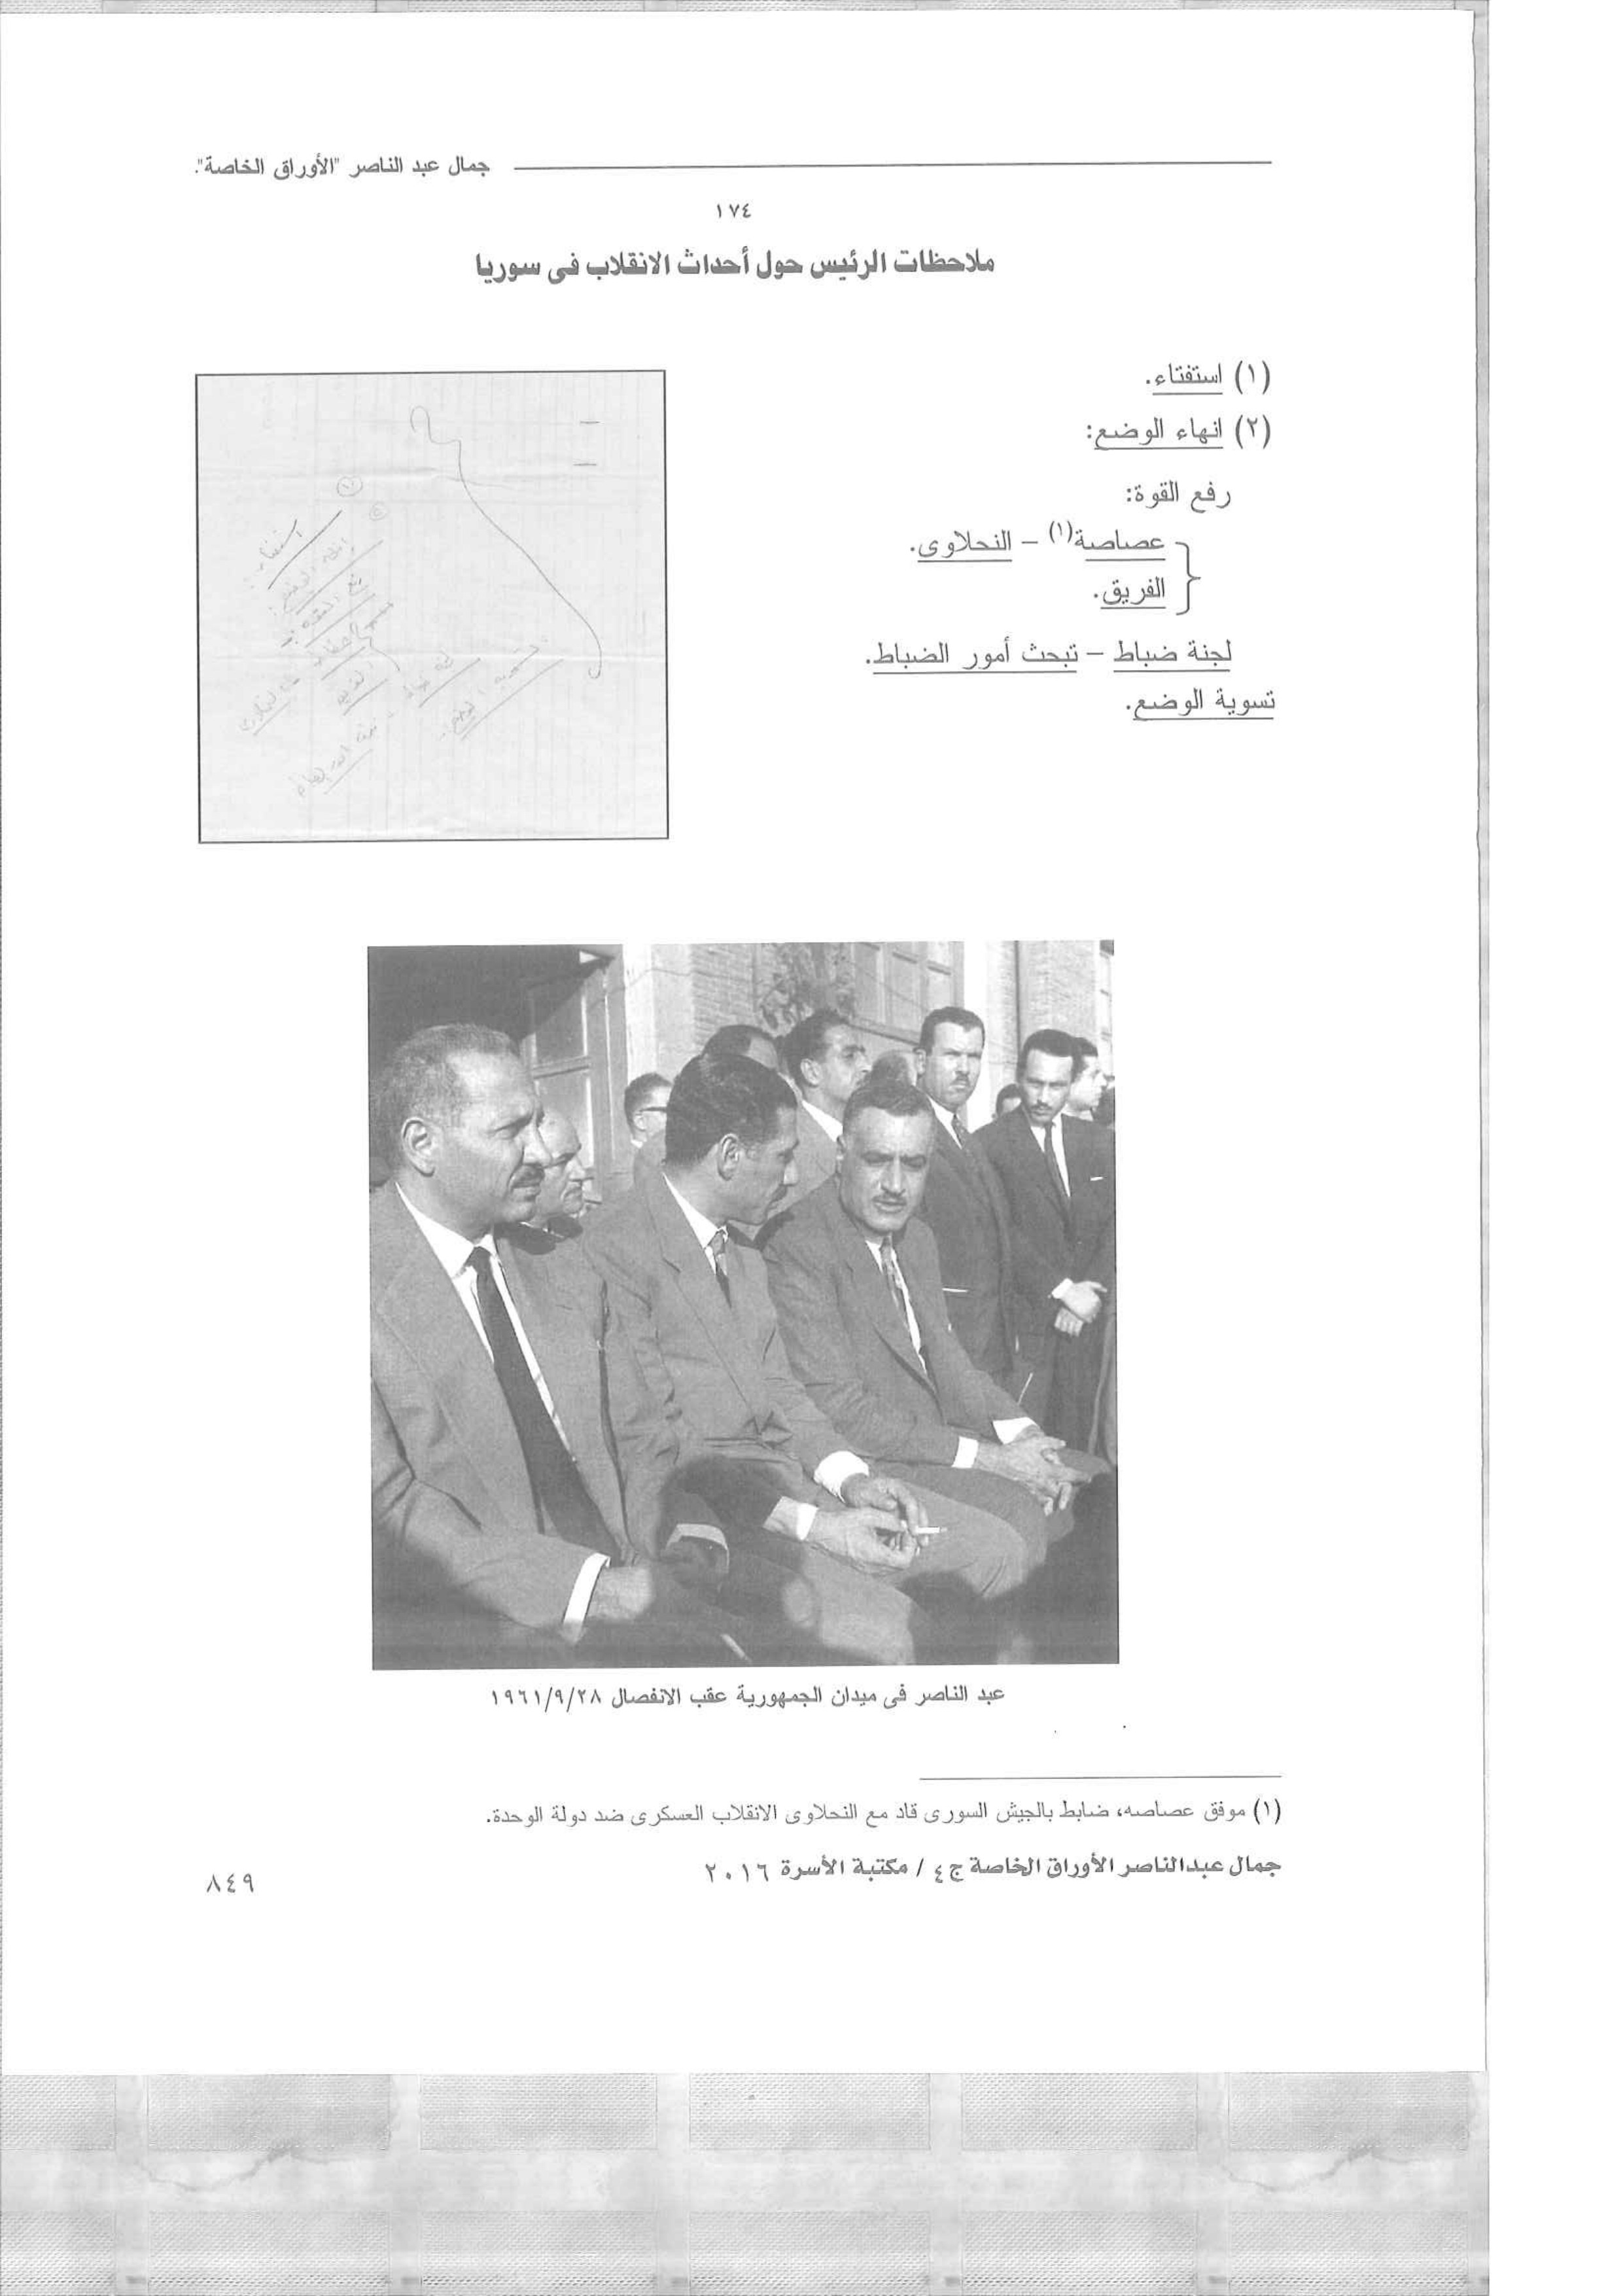 جمال عبد الناصر "الأوراق الخاصة".
١٧٤
ملاحظات الرئيس حول أحداث الانقلاب فى سوريا
(١) استفتاء.
(٢) انهاء الوضع:
رفع القوة:
عصاصة(١) – النحلاوى.
الفريق.
لجنة ضباط – تبحث أمور الضباط.
تسوية الوضع.
عبد الناصر فى ميدان الجمهورية عقب الانفصال ١٩٦١/٩/٢٨
(١) موفق عصاصه، ضابط بالجيش السورى قاد مع النحلاوى الانقلاب العسكرى ضد دولة الوحدة.
جمال عبدالناصر الأوراق الخاصة ج٤ / مكتبة الأسرة ٢٠١٦
٨٤٩